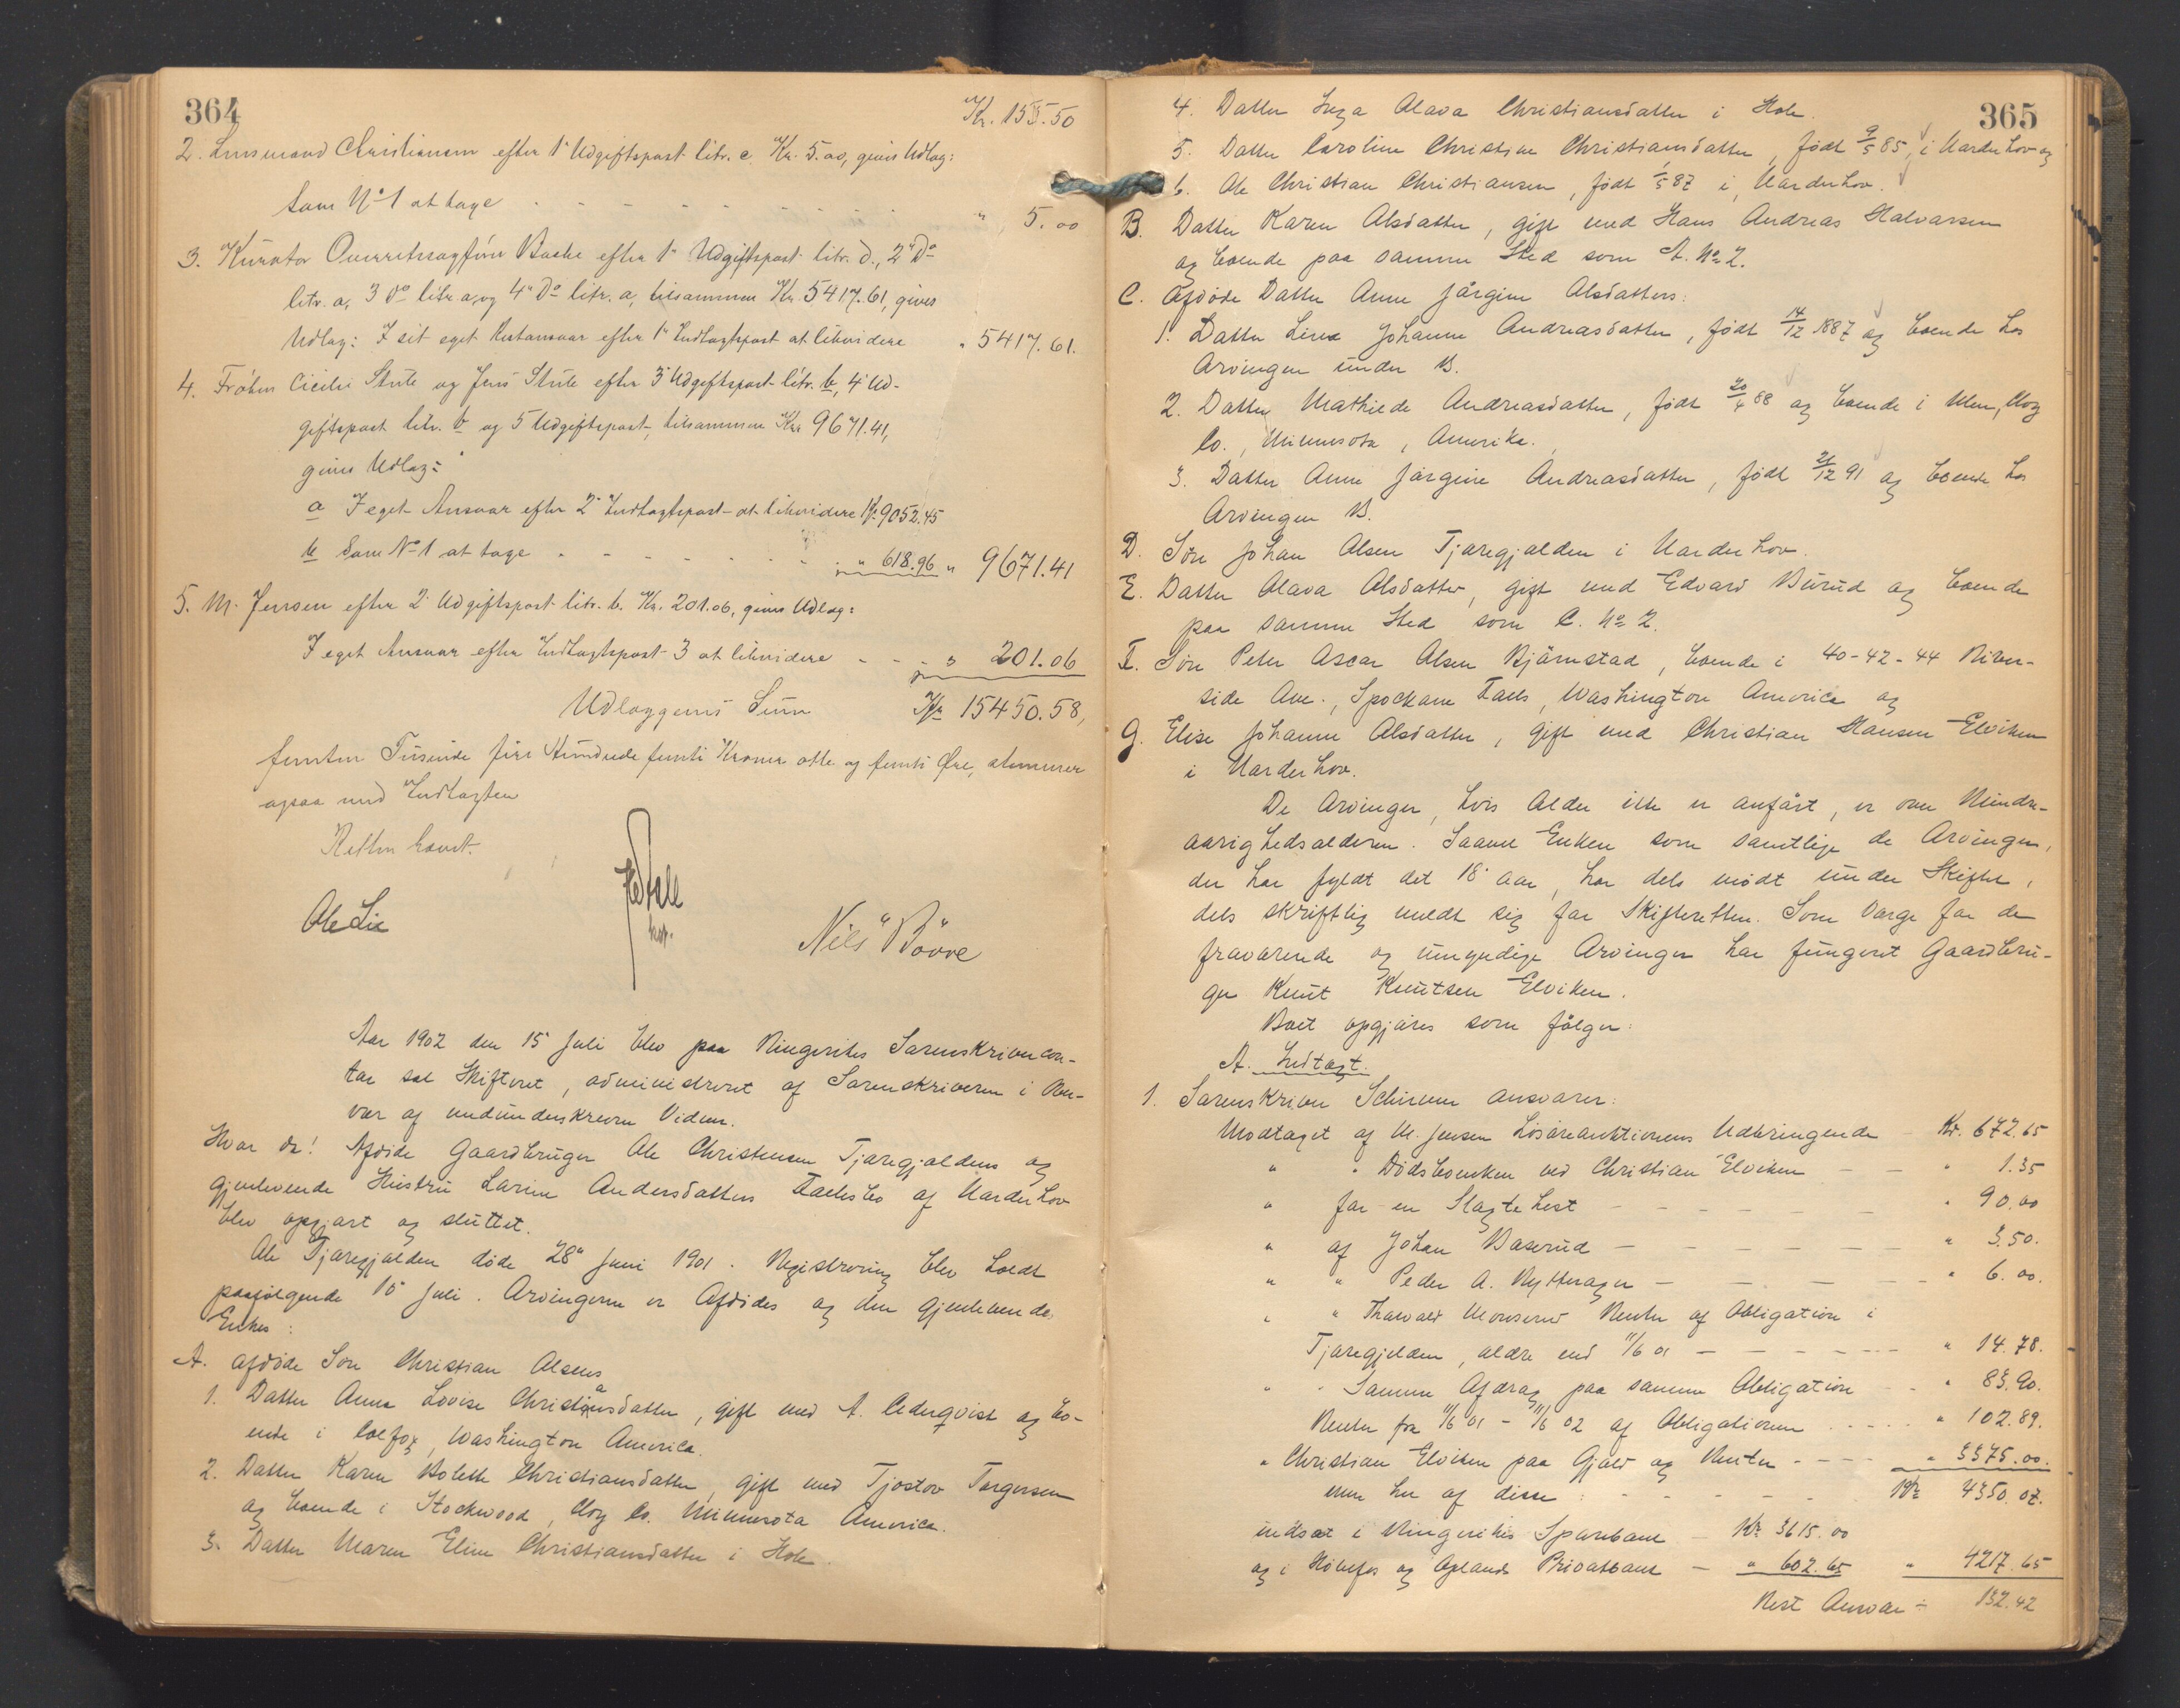 364
Kr. 155.50
2. Lensmand Christiansen efter 1' Udgiftspost litr. c. Kr. 5.00, gives Udlæg:
Som No 1 at tage - - - - - - - " 5.00
3. Kurator Overretssagfører Bache efter 1' Udgiftspost litr. d., 2' Do
litr. a, 3 Do litr. a, og 4' Do litr. a, tilsammen Kr. 5417.61, gives
Udlæg: I sit eget Restansvar efter 1' Indtægtspost at likvidere " 5417.61.
4. Frøken Cicilie Stute og Jens Stute efter 3' Udgiftspost litr. b, 4' Ud-
giftspost litr. b og 5 Udgiftspost, tilsammen Kr. 9671.41,
gives Udlæg:
a I eget Ansvar efter 2' Indtægtspost at likvidere Kr. 9052.45
b Som No 1 at tage - - - - - " 618.96 " 9671.41
5. M. Jensen efter 2' Udgiftspost litr. b. Kr. 201.06, gives Udlæg:
I eget Ansvar efter Indtægtspost 3 at likvidere - - - " 201.06
Udlæggenes Sum Kr 15450.58,
femten Tusinde fire Hundrede femti Kroner otte og femti Øre, stemmer
ogsaa med Indtægten
Retten hævet.
Ole Lie
Nils Bövre
Aar 1902 den 15 Juli blev paa Ringerikes Sorenskrivercon-
tor sat Skifteret, administreret af Sorenskriveren i Over-
vær af medunderskrevne Vidner.
Hvor da! Afdøde Gaardbruger Ole Christensen Tjæregjeldens og
gjenlevende Hustru Larine Andersdatters Fællesbo af Norderhov
blev opgjort og sluttet.
Ole Tjæregjelden døde 28' Juni 1901. Registrering blev holdt
paafølgende 15 Juli. Arvingerne er Afdødes og den gjenlevende
Enkes:
A. afdøde Søn Christian Olsens
1. Datter Anna Lovise Christiansdatter, gift med A. Cederqvist og bo-
ende i Colfax, Washington America.
2. Datter Karen Bolette Christiansdatter, gift med Tjostov Torgersen
og boende i Stockwood, Clay Co. Minnesota America.
3. Datter Maren Eline Christiansdatter i Hole.
365
4. Datter Inga Olava Christiansdatter i Hole.
5. Datter Caroline Christine Christiansdatter, født 9/5 85, i Norderhov og
6. Ole Christian Christiansen, født 1/5 87 i Norderhov.
B. Datter Karen Olsdatter, gift med Hans Andreas Halvorsen
og boende paa samme Sted som A. No 2.
C. Afdøde Datter Anne Jørgine Olsdatters:
1. Datter Lina Johanne Andreasdatter, født 14/12 1887 og boende hos
Arvingen under B.
2. Datter Mathilde Andreasdatter, født 20/4 88 og boende i Ulen, Clay
Co., Minnesota, Amerika.
3. Datter Anne Jørgine Andreasdatter, født 21/12 91 og boende hos
Arvingen B.
D. Søn Johan Olsen Tjæregjelden i Norderhov.
E. Datter Olava Olsdatter, gift med Edvard Burud og boende
paa samme Sted som C. No 2.
F. Søn Peter Oscar Olsen Bjørnstad, boende i 40-42-44 River-
side Ave., Spockane Falls, Washington America og
G. Elise Johanne Olsdatter, gift med Christian Hansen Elviken
i Norderhov.
De Arvinger, hvis Alder ikke er anført, er over Mindre-
aarighedsalderen. Saavel Enken som samtlige de Arvinger,
der har fyldt det 18' Aar, har dels mødt under Skiftet,
dels skriftlig meldt sig for Skifteretten. Som Værge for de
fraværende og umyndige Arvinger har fungeret Gaardbru-
ger Knut Knutsen Elviken.
Boet opgjøres som følger:
A. Indtægt.
1. Sorenskriver Schirmer ansvarer:
Modtaget af M. Jensen Løsøreauktionens Udbringende - Kr. 672.65
" " Dødsboenken ved Christian Elviken - - " 1.35
" for en Slagtehest - - - - - - " 90.00
" af Johan Baserud - - - - - - " 3.50.
" " Peder A. Rytterager - - - - - " 6.00.
" " Thorvald Monserud Renter af Obligation i
Tjæregjelden, ældre end 11/6 01 - - - - - " 14.78.
" " Samme Afdrag paa samme Obligation - - " 83.90.
Renter fra 11/6 01 - 11/6 02 af Obligationen - - - - " 102.89.
" Christian Elviken paa Gjæld og Renter - - - - " 3375.00.
men har af disse: - - - - - Kr 4350.07.
indsat i Ringerikes Sparebank - Kr. 3615.00
og i Hönefos og Oplands Privatbank - " 602.65 " 4217.65
Rest Ansvar - 132.42